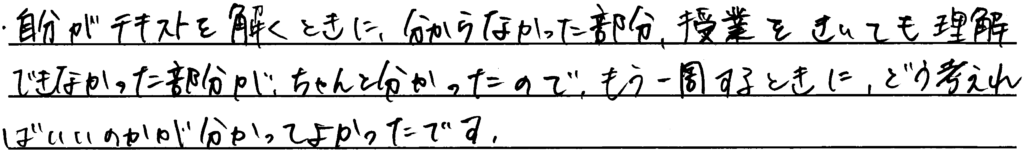 ・自分がテキストを解くときに、分からなかった部分、授業をきいても理解
できなかった部分が、ちゃんと分かったので、もう一周するときに、どう考えれ
ばいいのかが分かってよかったです。